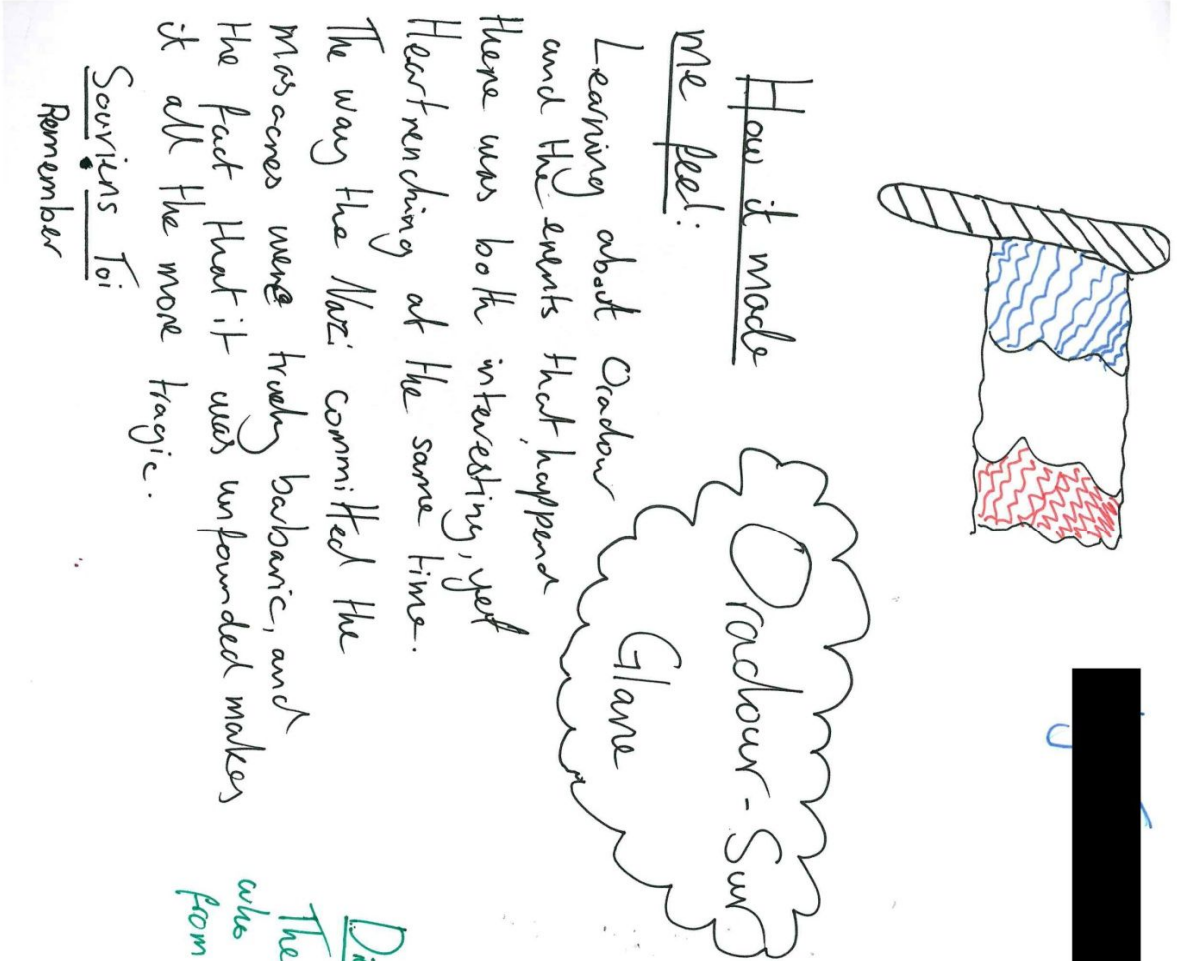 How it made
me feel:
Learning about Oradour
and the events that happend
there was both interesting, yet
Heartrenching at the same time.
The way the Nazi committed the
masacres were truely barbaric, and
the fact that it was unfounded makes
it all the more tragic.
Souviens Toi
Remember
Oradour-Sur
Glane
The
who
from